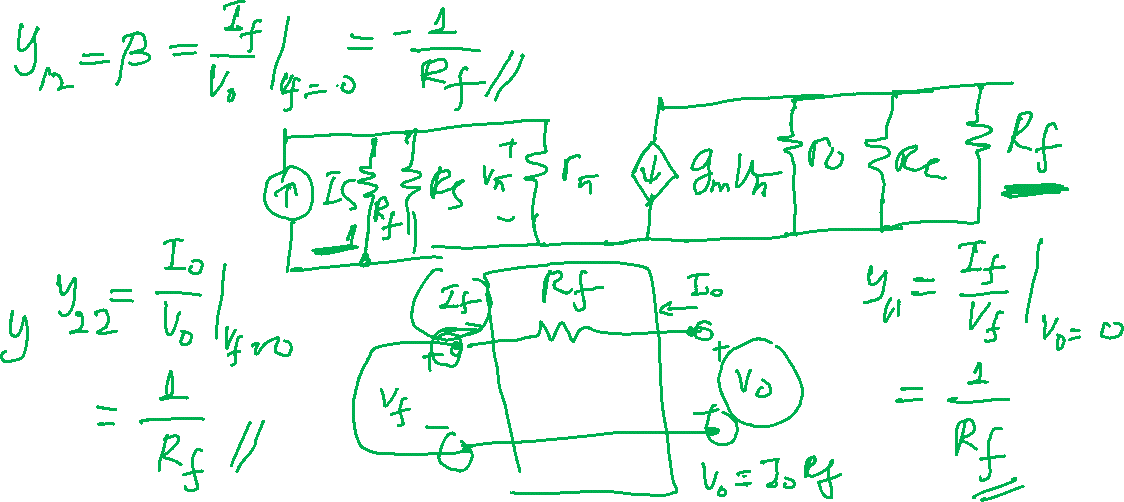 y₁₂ = β = I_f / V_o |_{V_f = 0} = -1 / R_f //
I_s R_f R_s + V_π - r_π g_m V_π r_o R_C R_f
1
y y₂₂ = I_o / V_o |_{V_f = 0} = 1 / R_f //
I_f R_f I_o
+ V_f - + V_o -
V_o = I_o R_f
y₁₁ = I_f / V_f |_{V_o = 0} = 1 / R_f